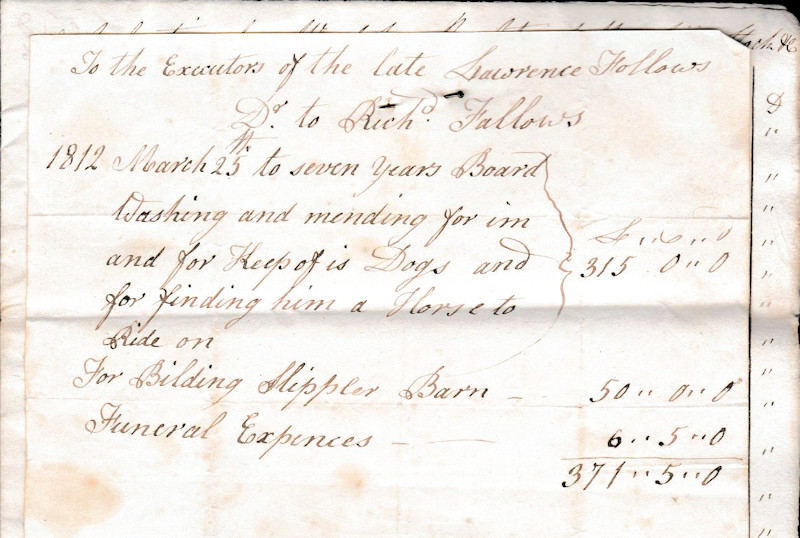 To the Executors of the late Lawrence Follows
Dr. to Richd. Fallows
1812 March 25th to seven years Board
Washing and mending for im
£ " s " d
and for Keep of is Dogs and 315 0 " 0
for finding him a Horse to
Ride on
For Bilding Slippler Barn — 50 " 0 " 0
Funeral Expences — 6 " 5 " 0
371 " 5 " 0